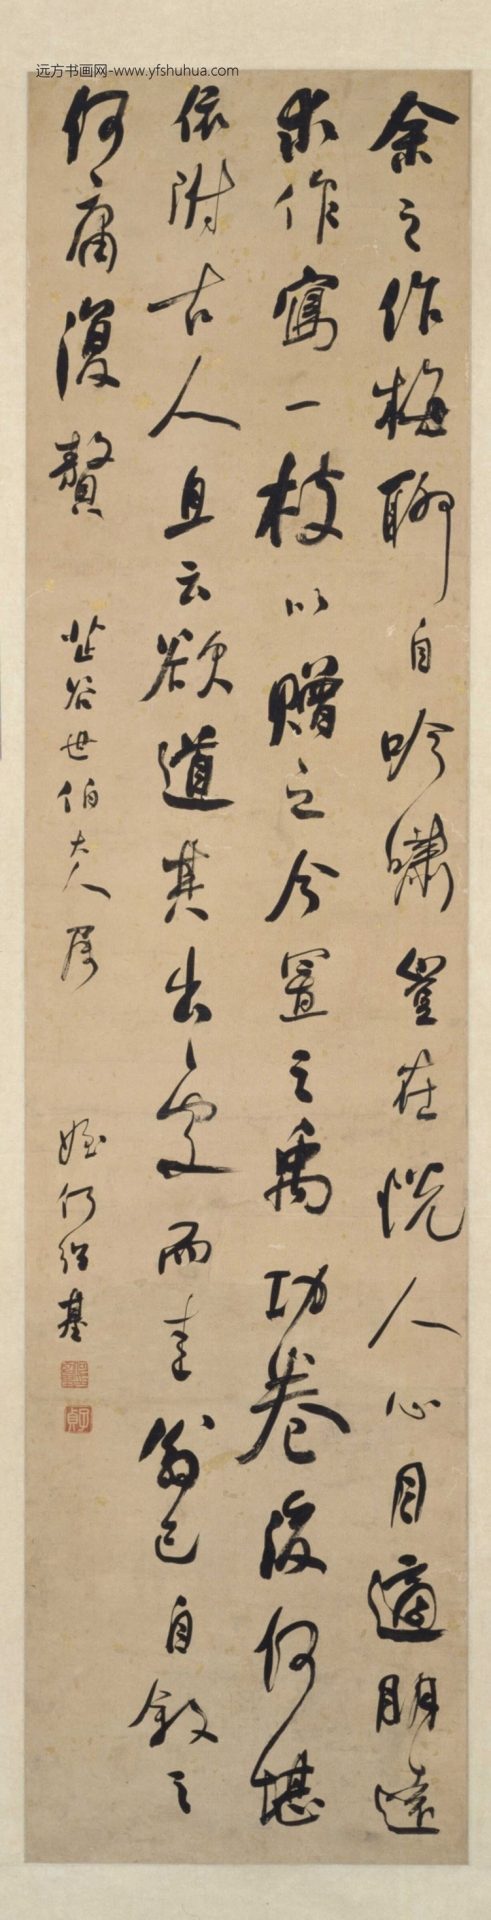 远方书画网-www.yfshuhua.com
余之作梅聊自吟啸岂在悦人心目適朋遠
求作寫一枝以贈之今置之禹功卷後何堪
依附古人且云欲道其出處而圭翁已自敘之
何庸復贅
芷谷世伯大人属
姪何紹基